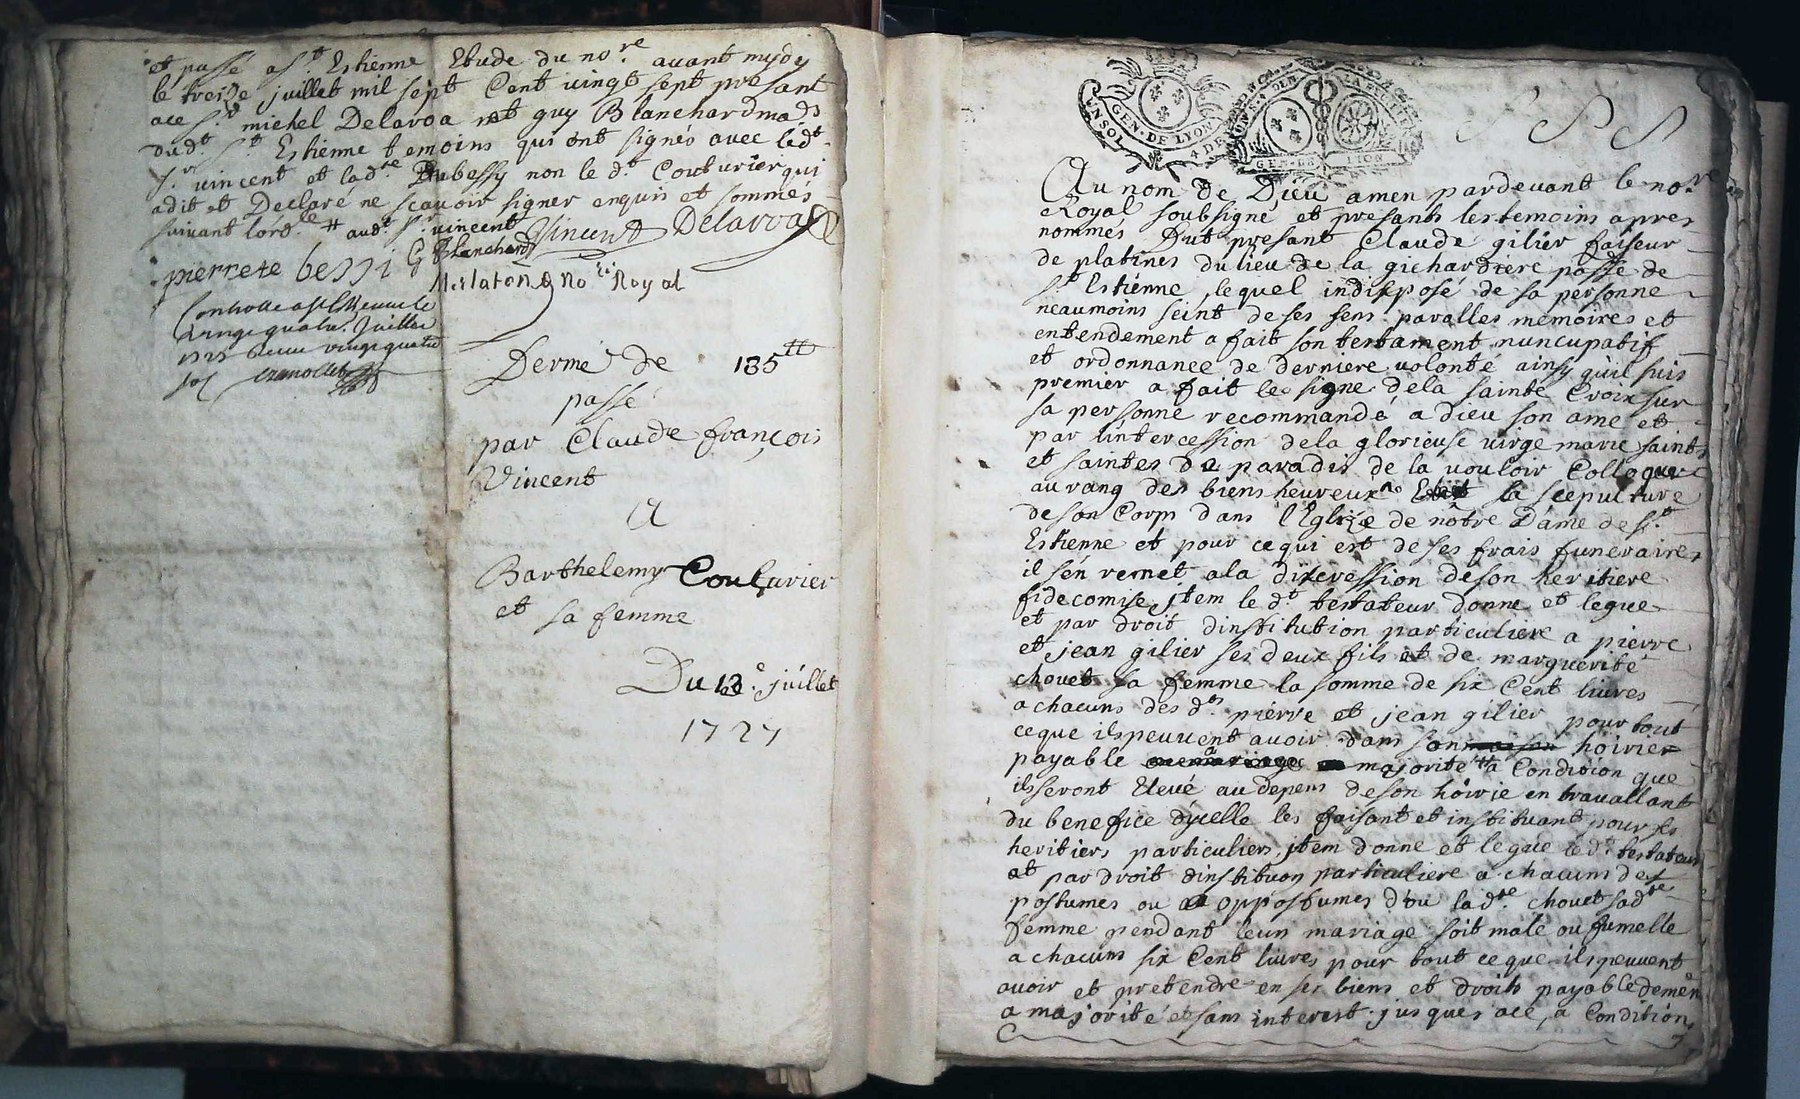 et passé a St Estienne Etude du nore. avant mydy
le treize juillet mil sept Cent vingt sept presant
ace sr. michel Delaroa et guy Blanchard mads
dudt St. Estienne temoins qui ont signés avec ledt.
sr. vincent et ladre. non le dt. Couturier qui
adit et Declaré ne scavoir signer enquis et sommés
suivant lord.ce # audt. sr. vincent Vincent Delaroa
pierrete bessi G Blanchard
Merlaton No.re Royal
Controlle a St Estienne le
vingt quatre Juillet
1727 Receu vingt quatre
sos
Fermé de 135 tt
passé
par Claude françois
Vincent
A
Barthelemy Couturier
et sa femme
Du 13e. juillet
1727
UN SOL GEN. DE LYON 4 DEN.
GEN. DE LION
Au nom de Dieu amen pardevant le nore
Royal soubsigné et presants les temoins apres
nommés fut presant Claude gilier faiseur
de platines du lieu de la gichardiere passe de
St. Estienne lequel indisposé de sa personne
neaumoins seint de ses sens paralles memoires et
entendement a fait son testament nuncupatif
et ordonnance de derniere volonté ainsy quil suis
premier a fait le signe dela sainte Croix sur
sa personne recommandé a dieu son ame et
par lintercession dela glorieuse virge marie saints
et saintes de paradis de la vouloir Colloquer
au rang des biens heureux la scepulture
de son Corps dans l'Eglize de nôtre Dame de St.
Estienne et pour cequi est de ses frais funeraires
il s'en remet ala discression deson heritiere
fidecomise, jtem le dt. testateur donne et legue
et par droit dinstitution particuliere a pierre
et jean gilier ses deux fils et de marguerite
chouet sa femme la somme de six Cent livres
a chacuns des dts. pierre et jean gilier pour tout
ceque ils peuvent avoir dans son hoirier
payable a majorité # a Condition que
ils seront Elevé au depens de son hoirie en travallant
du benefice d'ycelle les faisant et instituant pour ses
heritiers particuliers, jtem donne et legue le dt. testateur
et par droit dinstituon particuliere a chacuns des
postumes ou oppostumes d'ou ladte. chouet sadte
femme pendant leurs mariage soit male ou fumelle
a chacuns six Cent livres pour tout ceque ils peuvent
avoir et pretendre en ses biens et droits payable demên
a majorité et sans interest jusques ace, a Condition